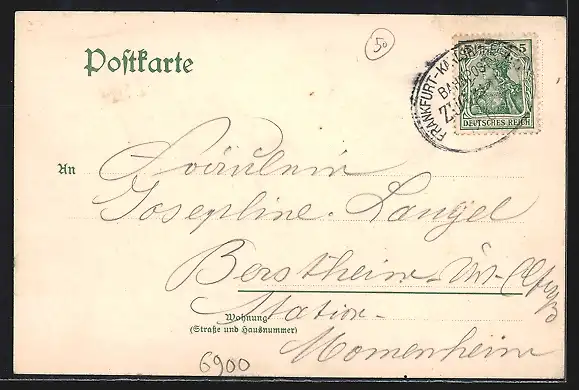 50
Postkarte
5
FRANKFURT-
BAHNPOST
ZUG
DEUTSCHES REICH
An
Fräulein
Josephine Langel
Berstheim
Wohnung
(Straße und Hausnummer)
Station
Momenheim
6900